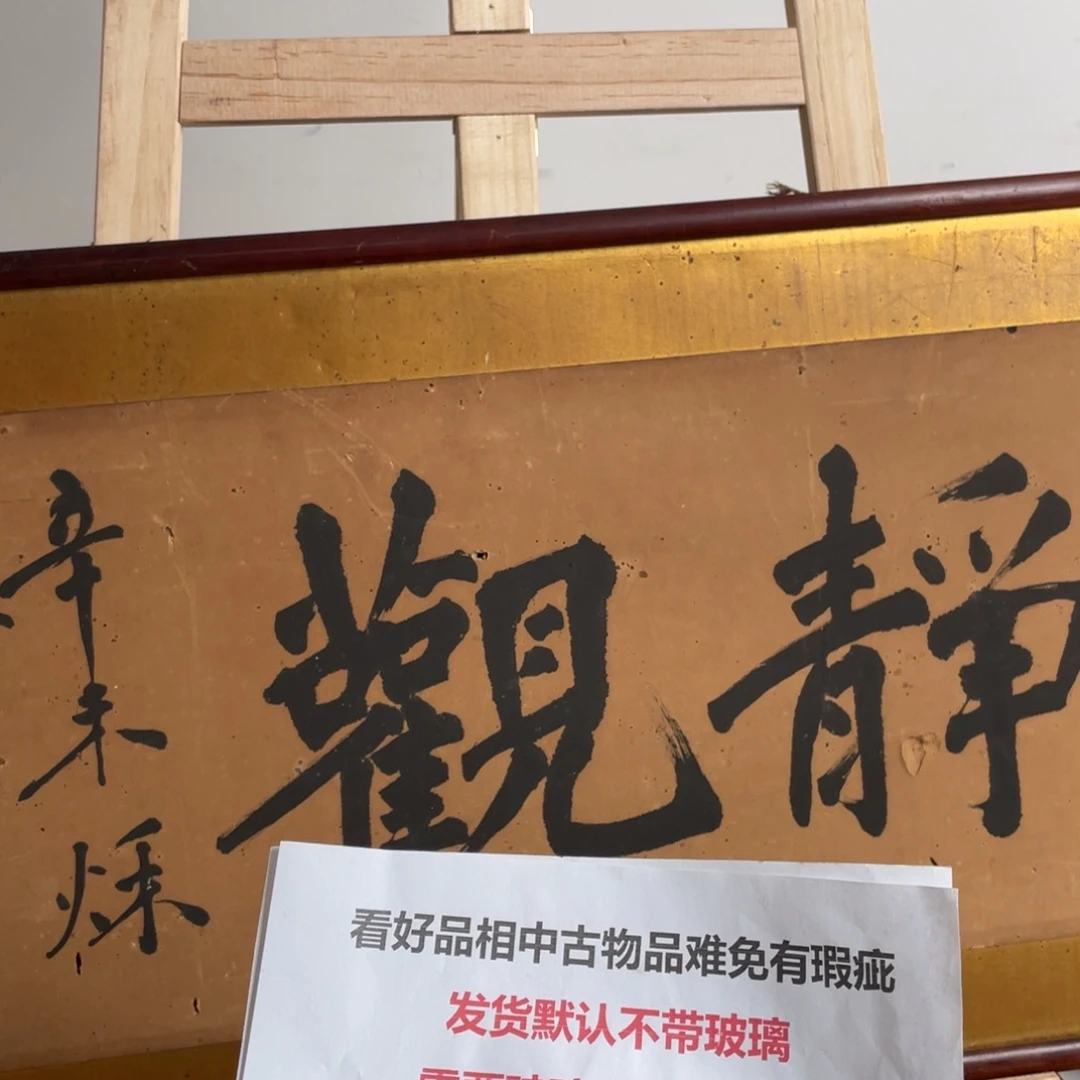 靜觀
辛未
秌
看好品相中古物品难免有瑕疵
发货默认不带玻璃